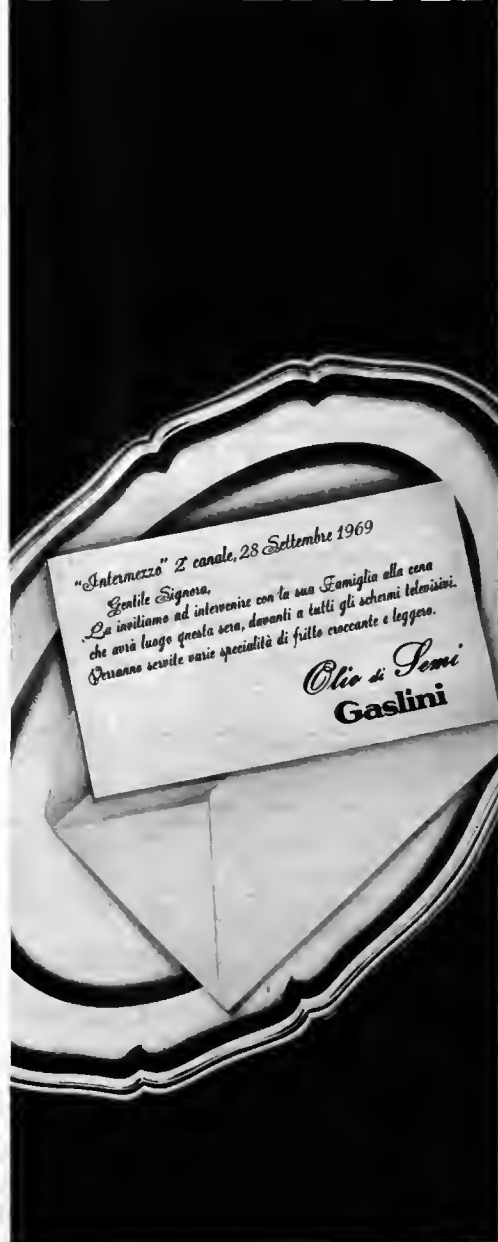 "Intermezzo" 2° canale, 28 Settembre 1969
Gentile Signora,
La invitiamo ad intervenire con la sua Famiglia alla cena
che avrà luogo questa sera, davanti a tutti gli schermi televisivi.
Verranno servite varie specialità di fritto croccante e leggero.
Olio di Semi
Gaslini